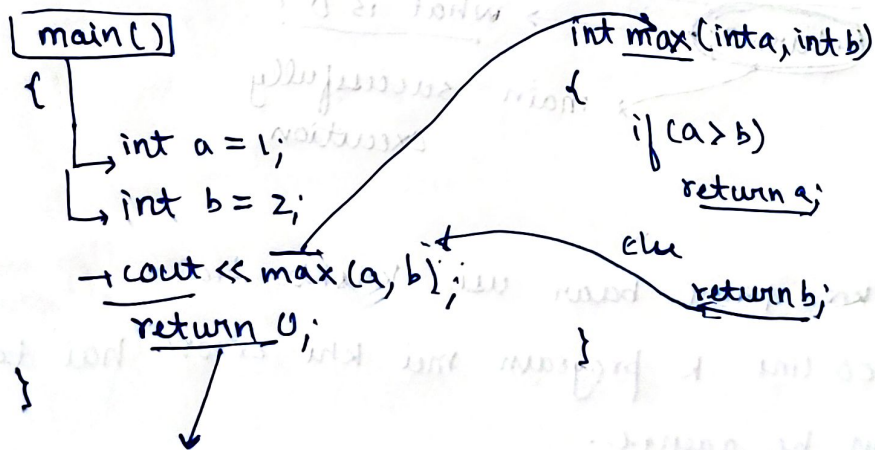 main()
{
int a = 1;
int b = 2;
cout << max(a, b);
return 0;
}
int max(int a, int b)
{
if (a > b)
return a;
Else
return b;
}